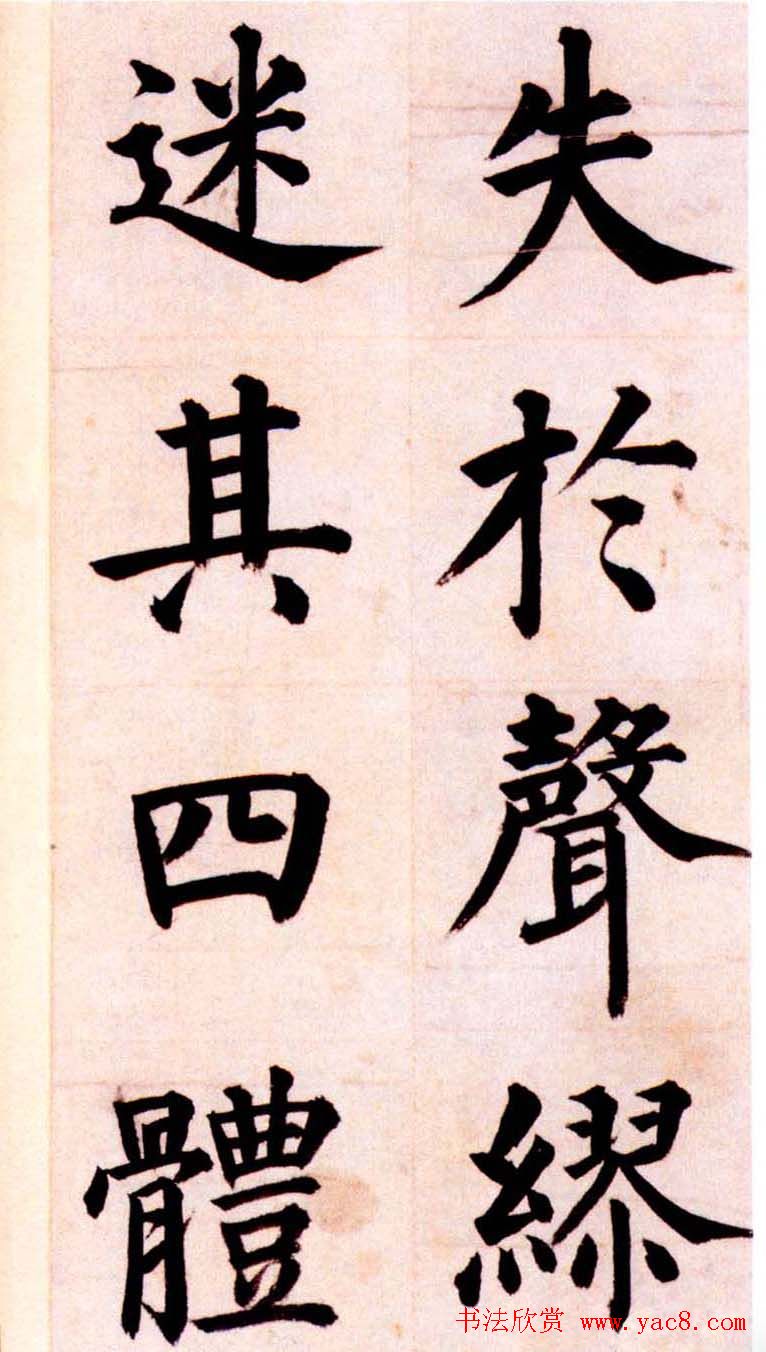 失於聲繆
迷其四體
书法欣赏 www.yac8.com